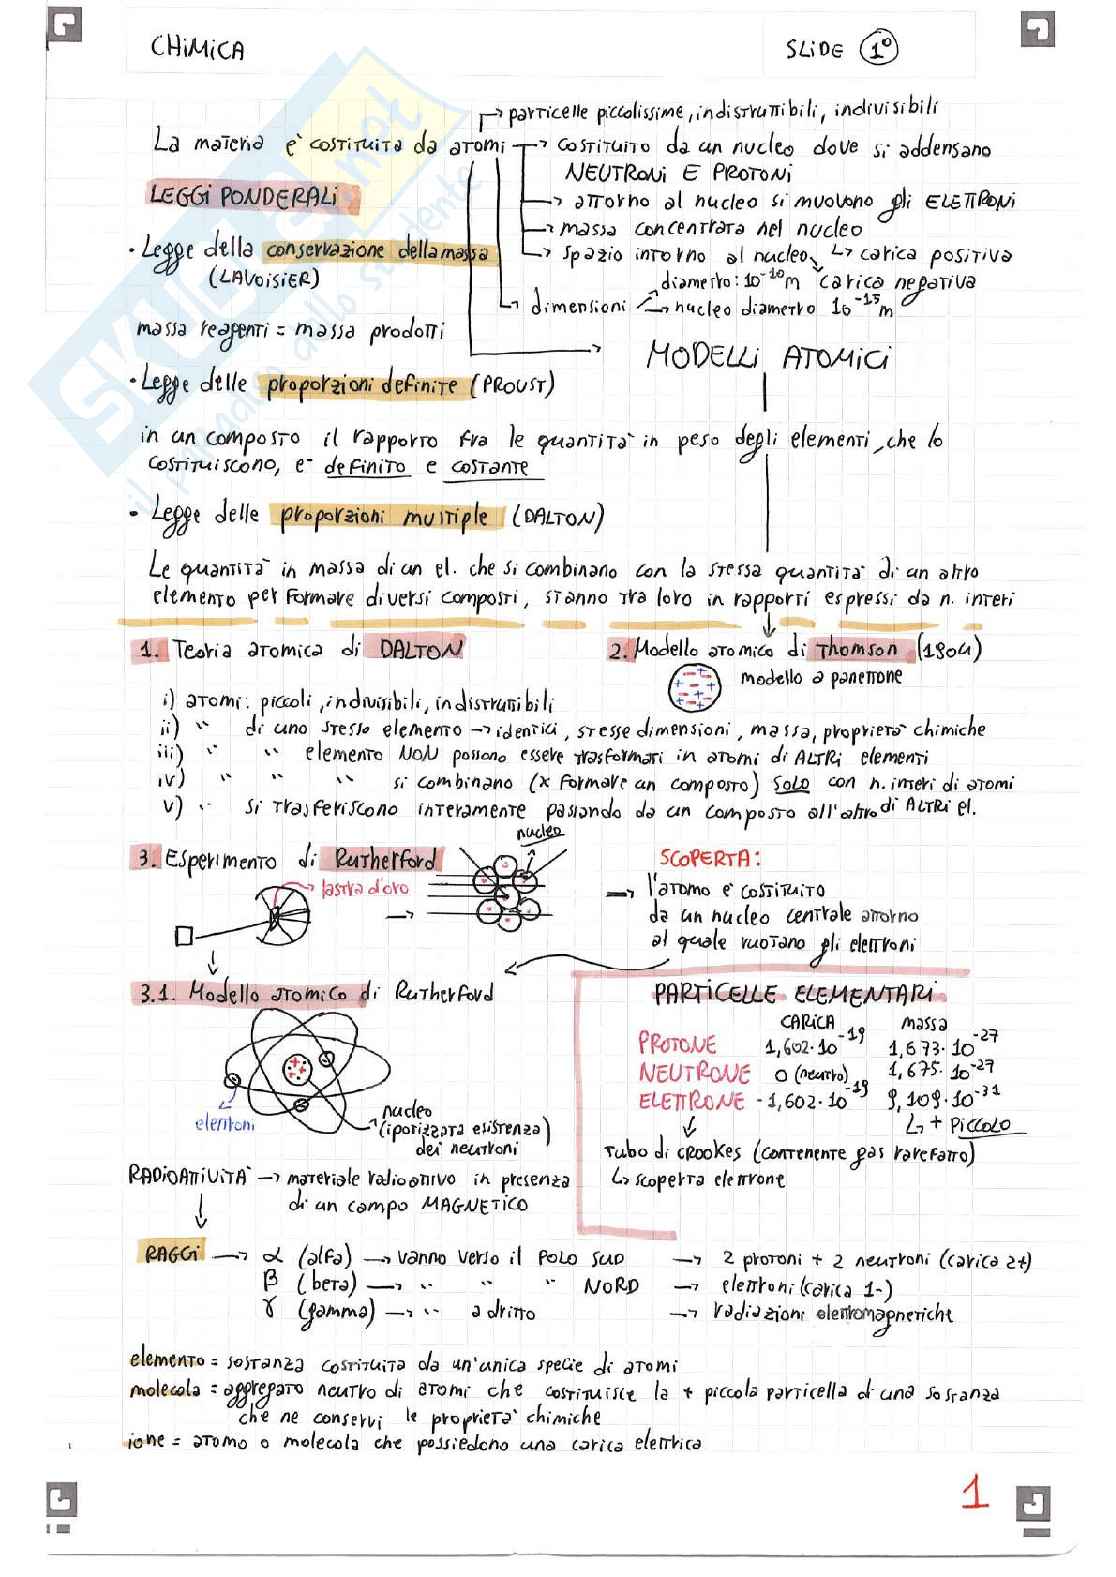 CHIMICA
SLIDE 1°
→ particelle piccolissime, indistruttibili, indivisibili
La materia è costituita da atomi → costituito da un nucleo dove si addensano
NEUTRONI E PROTONI
LEGGI PONDERALI
→ attorno al nucleo si muovono gli ELETTRONI
→ massa concentrata nel nucleo
• Legge della conservazione della massa
(LAVOISIER)
→ spazio intorno al nucleo ↳ carica positiva
diametro: 10⁻¹⁰m carica negativa
↳ dimensioni → nucleo diametro 10⁻¹⁵m
massa reagenti = massa prodotti
MODELLI ATOMICI
• Legge delle proporzioni definite (PROUST)
in un composto il rapporto fra le quantità in peso degli elementi, che lo
costituiscono, e' definito e costante
• Legge delle proporzioni multiple (DALTON)
Le quantità in massa di un el. che si combinano con la stessa quantità di un altro
elemento per formare diversi composti, stanno tra loro in rapporti espressi da n. interi
1. Teoria atomica di DALTON
2. Modello atomico di Thomson (1904)
modello a panettone
i) atomi: piccoli, indivisibili, indistruttibili
ii) " di uno stesso elemento → identici, stesse dimensioni, massa, proprietà chimiche
iii) " " elemento NON possono essere trasformati in atomi di ALTRI elementi
iv) " " " si combinano (x formare un composto) SOLO con n. interi di atomi
v) " si trasferiscono interamente passando da un composto all'altro di ALTRI el.
nucleo
3. Esperimento di Rutherford
SCOPERTA:
lastra d'oro
→ l'atomo e' costituito
da un nucleo centrale attorno
al quale ruotano gli elettroni
3.1. Modello atomico di Rutherford
PARTICELLE ELEMENTARI
CARICA massa
PROTONE 1,602·10⁻¹⁹ 1,673·10⁻²⁷
NEUTRONE 0 (neutro) 1,675·10⁻²⁷
ELETTRONE -1,602·10⁻¹⁹ 9,109·10⁻³¹
↳ + PICCOLO
elettroni
nucleo
(ipotizzata esistenza)
dei neutroni
Tubo di CROOKES (contenente gas rarefatto)
↳ scoperta elettrone
RADIOATTIVITA' → materiale radioattivo in presenza
di un campo MAGNETICO
RAGGI → α (alfa) → vanno verso il POLO SUD → 2 protoni + 2 neutroni (carica 2+)
β (beta) → " " " NORD → elettroni (carica 1-)
γ (gamma) → " a dritto → radiazioni elettromagnetiche
elemento = sostanza costituita da un'unica specie di atomi
molecola = aggregato neutro di atomi che costituisce la + piccola particella d una sostanza
che ne conservi le proprieta' chimiche
ione = atomo o molecola che possiedono una carica elettrica
1
SKUOLA.net
il paradiso dello studente